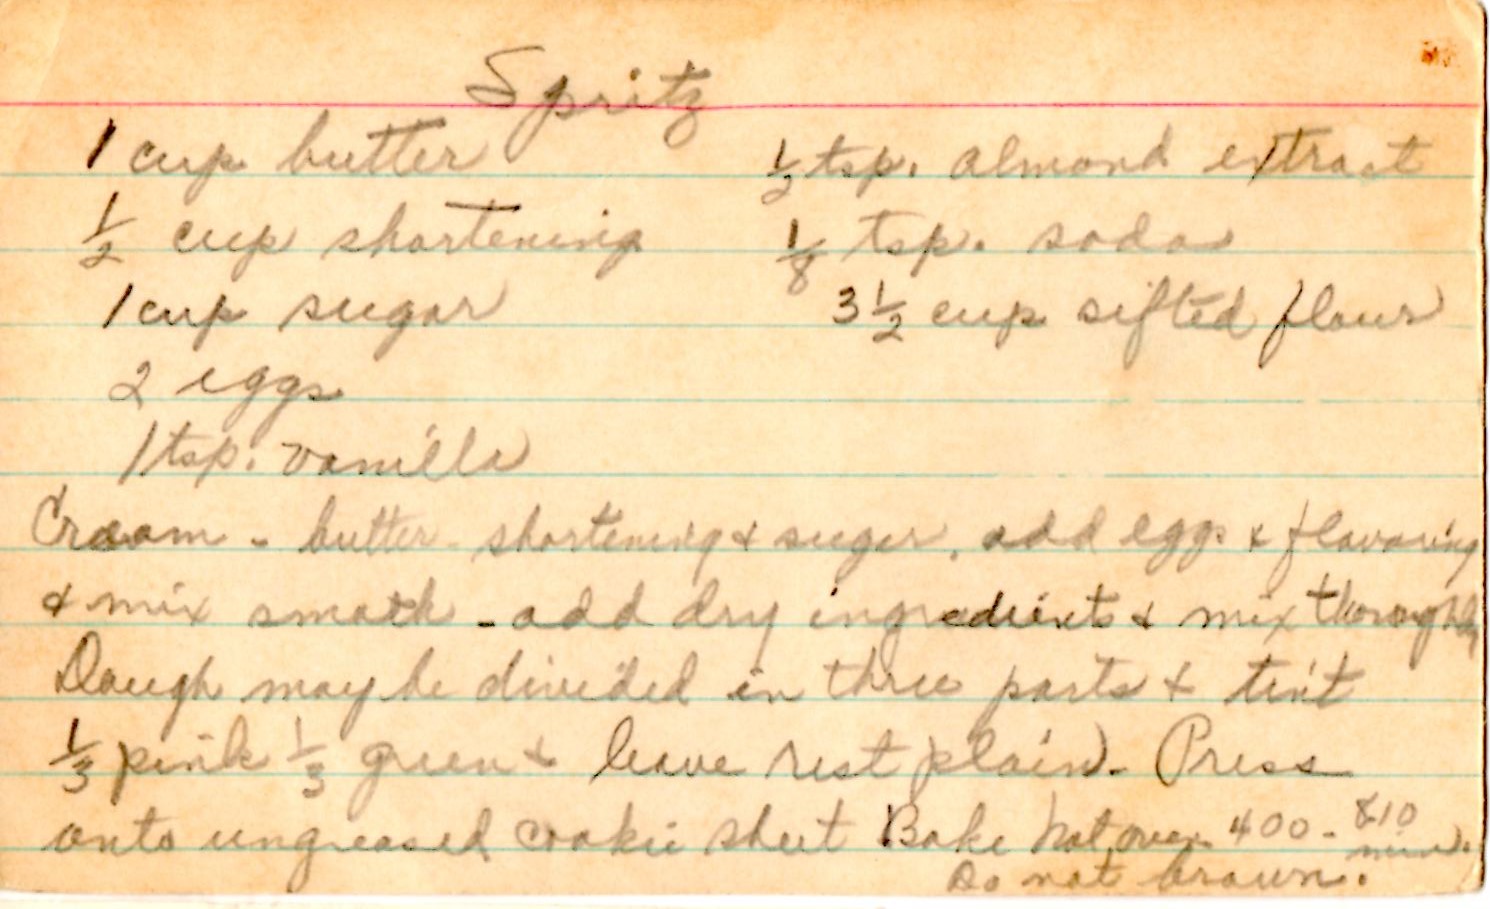 Spritz
1 cup butter
1/2 cup shortening
1 cup sugar
2 eggs
1 tsp. vanilla
1/2 tsp. almond extract
1/8 tsp. soda
3 1/2 cup sifted flour
Cream - butter - shortening & sugar. add eggs & flavoring
& mix smooth - add dry ingredients & mix thoroughly
Dough may be divided in three parts & tint
1/3 pink 1/3 green & leave rest plain - Press
onto ungreased cookie sheet Bake hot oven 400 - 8 10 min.
Do not brown.